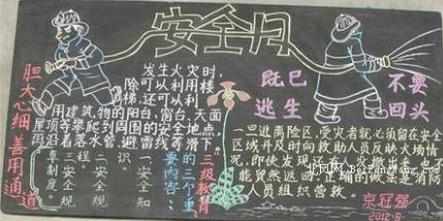 安全月
胆大心细善用通道
发生火灾时
除可利用楼
梯，还可以利用
建筑物的阳台、窗台、天面
屋顶等攀爬到周围的安全地点，
用落水管、避雷线等
三级教育
的三个重
要内容：
一安全知
识
二安全规
程
三安全规
章制度
既已逃生
不要回头
一旦逃离险区，受灾者就必须留在安全
区域，并及时向救助人员反映火场情
况，即使发现
能贸然返回，正确的做法是消防
人员组织营救。
2012.5